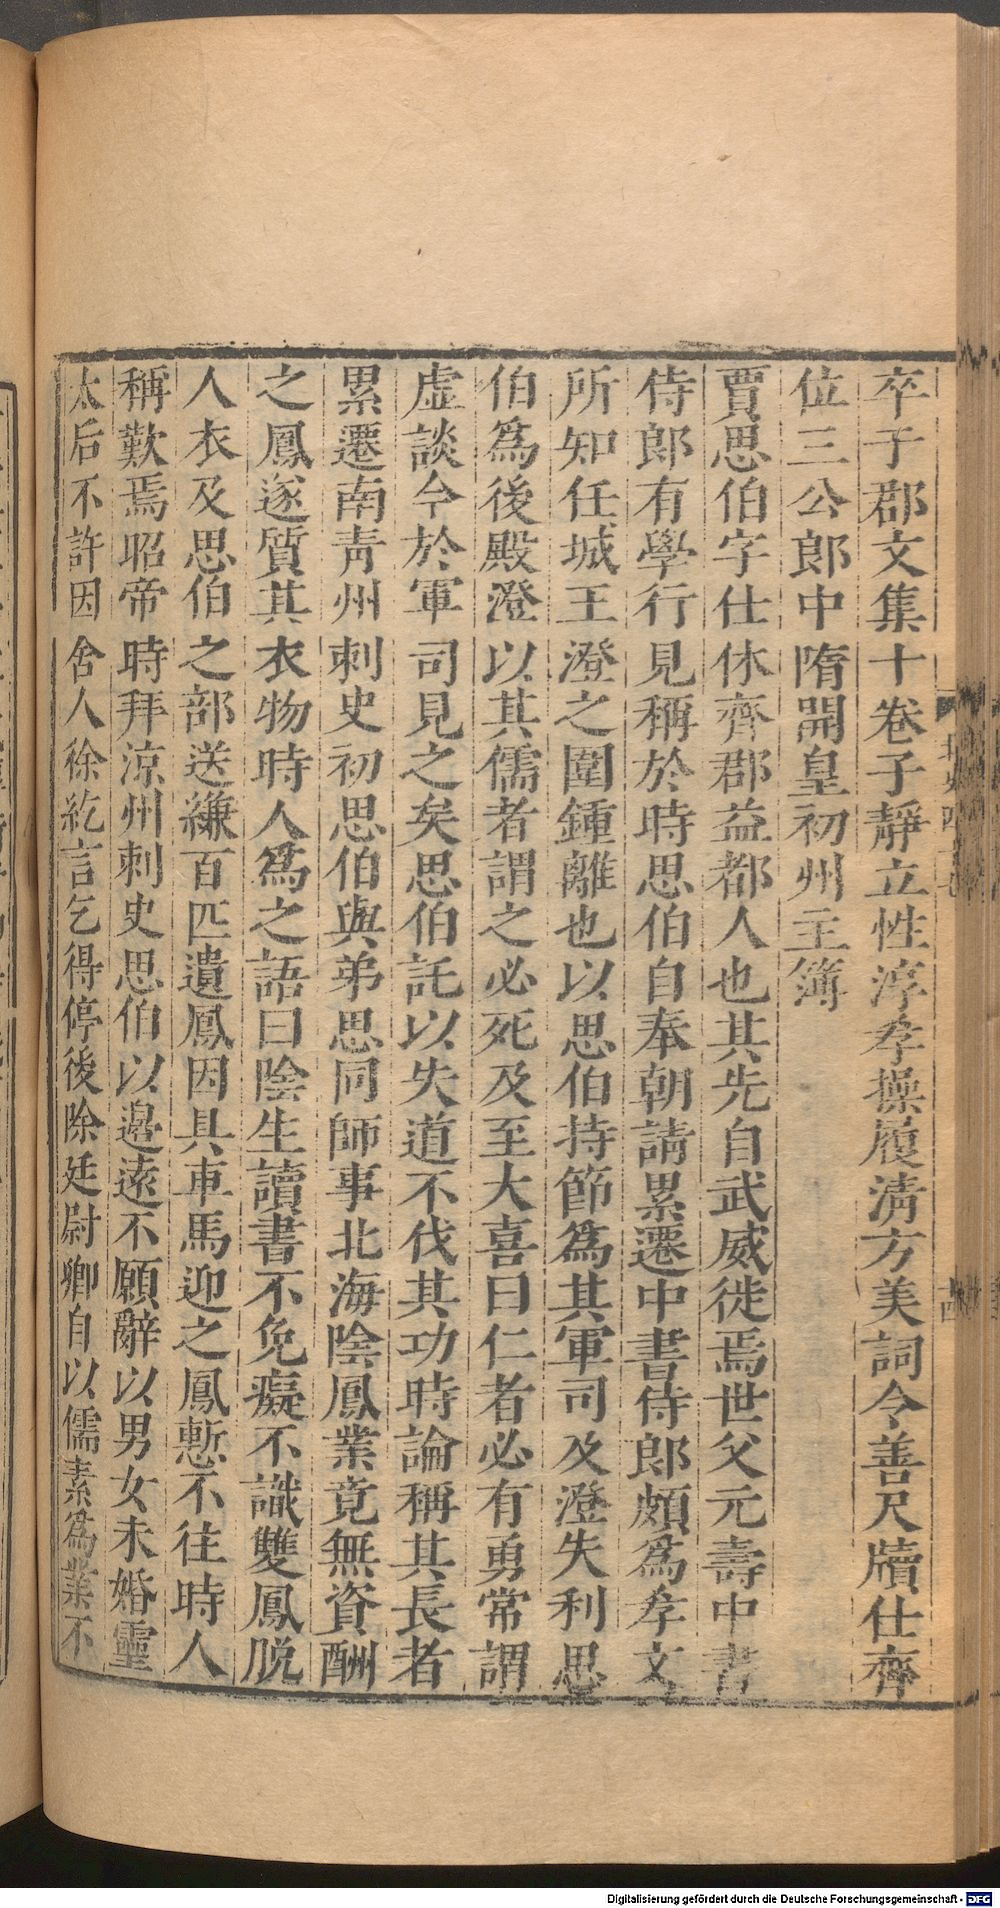 卒子郡文集十卷子靜立性淳孝操履淸方美詞令善尺牘仕齊
位三公郎中隋開皇初州主簿
賈思伯字仕休齊郡益都人也其先自武威徙焉世父元壽中書
侍郎有學行見稱於時思伯自奉朝請累遷中書侍郎頗爲孝文
所知任城王澄之圍鍾離也以思伯持節爲其軍司及澄失利思
伯爲後殿澄以其儒者謂之必死及至大喜曰仁者必有勇常謂
虛談今於軍司見之矣思伯託以失道不伐其功時論稱其長者
累遷南靑州刺史初思伯與弟思同師事北海陰鳳業竟無資酬
之鳳遂質其衣物時人爲之語曰陰生讀書不免癡不識雙鳳脫
人衣及思伯之部送縑百匹遺鳳因具車馬迎之鳳慙不往時人
稱歎焉昭帝時拜涼州刺史思伯以邊遠不願辭以男女未婚靈
太后不許因舍人徐紇言乞得停後除廷尉卿自以儒素爲業不
Digitalisierung gefördert durch die Deutsche Forschungsgemeinschaft - DFG